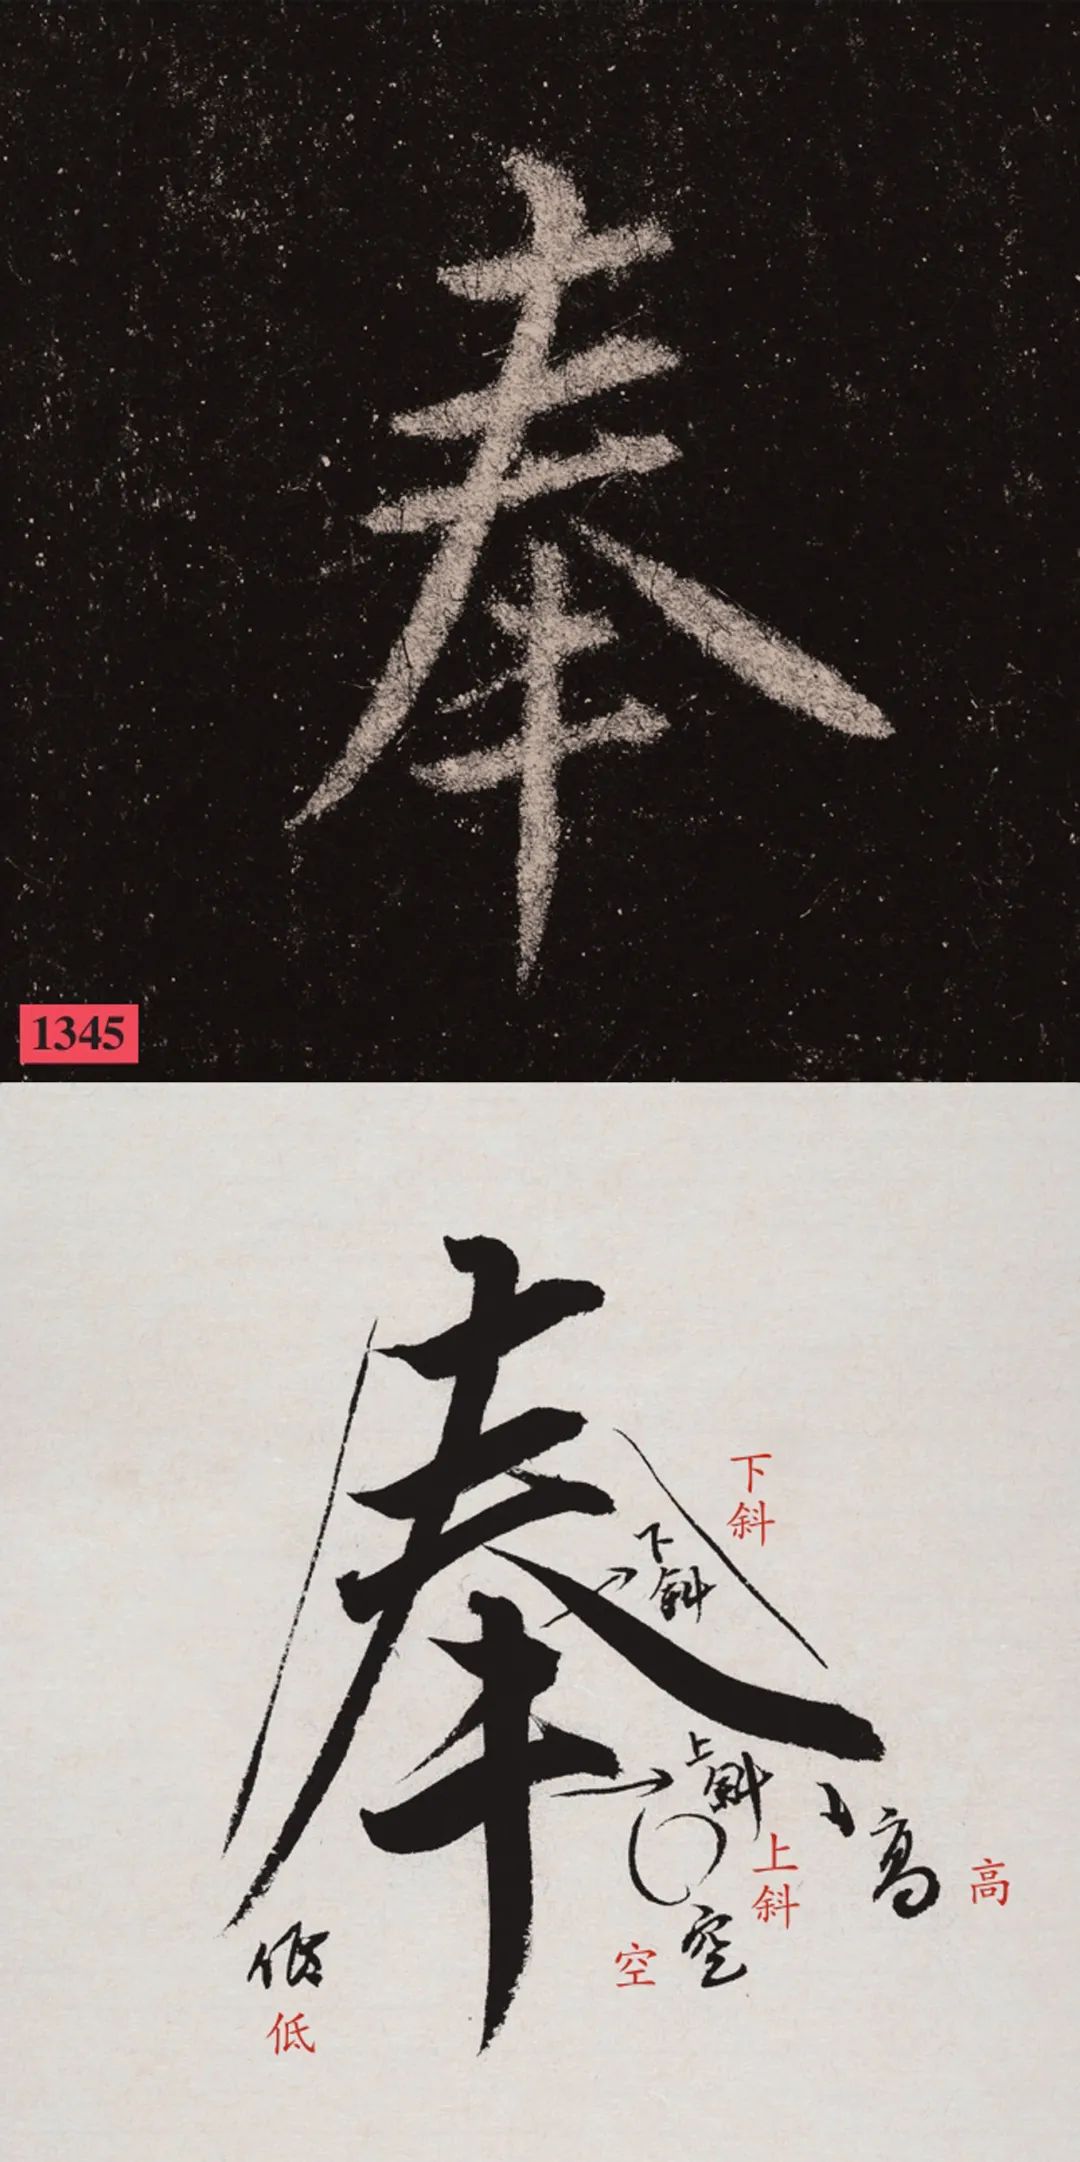 奉
1345
奉
下斜
下斜
上斜
上斜
高
高
空
空
低
低